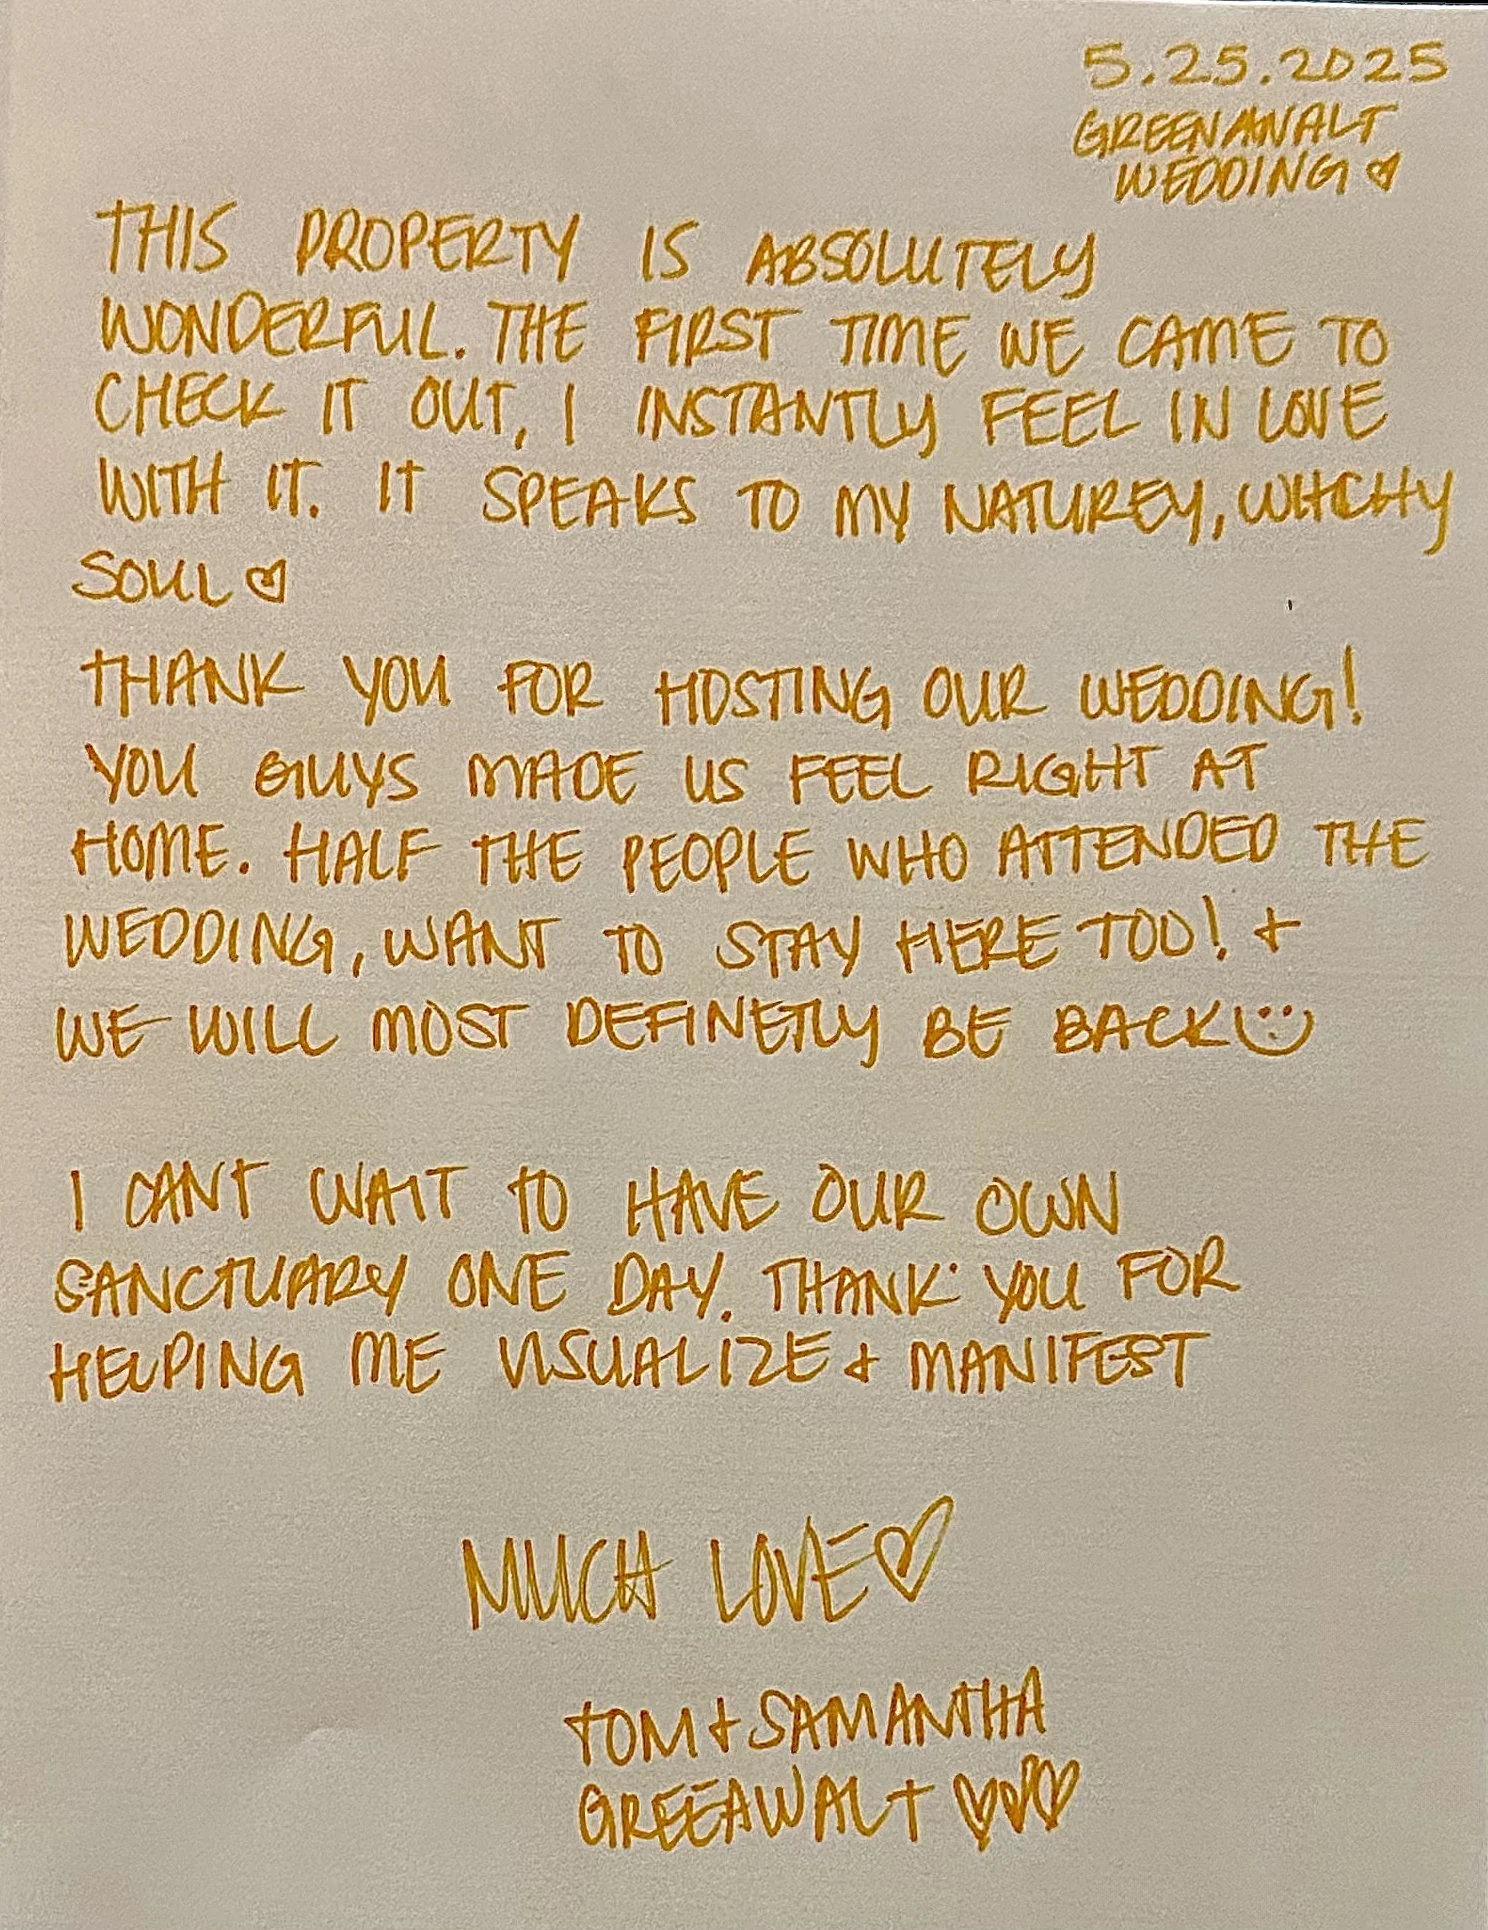 5.25.2025
GREENAWALT
WEDDING ♡
THIS PROPERTY IS ABSOLUTELY
WONDERFUL. THE FIRST TIME WE CAME TO
CHECK IT OUT, I INSTANTLY FEEL IN LOVE
WITH IT. IT SPEAKS TO MY NATUREY, WITCHY
SOUL ♡
THANK YOU FOR HOSTING OUR WEDDING!
YOU GUYS MADE US FEEL RIGHT AT
HOME. HALF THE PEOPLE WHO ATTENDED THE
WEDDING, WANT TO STAY HERE TOO! +
WE WILL MOST DEFINETLY BE BACK ☺
I CANT WAIT TO HAVE OUR OWN
SANCTUARY ONE DAY. THANK YOU FOR
HELPING ME VISUALIZE + MANIFEST
MUCH LOVE ♡
TOM + SAMANTHA
GREEAWALT ♡♡♡